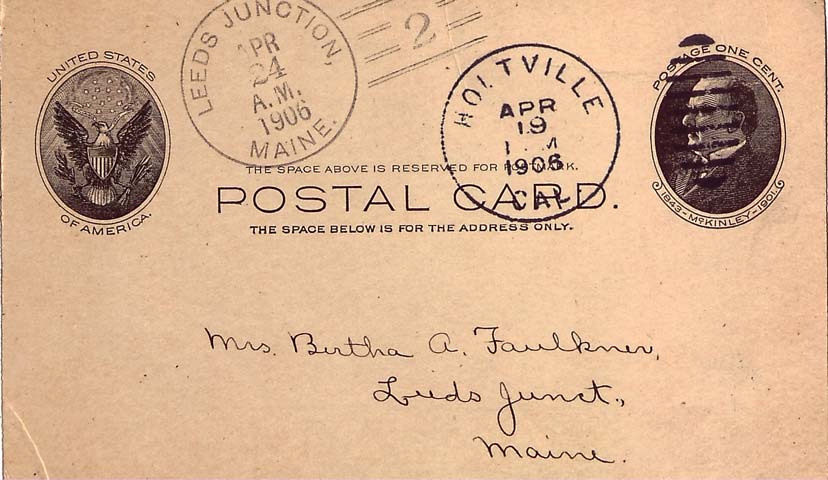 LEEDS JUNCTION,
APR
24
A.M.
1906
MAINE.
2
HOLTVILLE
APR
19
M
1906
CAL.
UNITED STATES
OF AMERICA.
POSTAGE ONE CENT.
1843-McKINLEY-1901
THE SPACE ABOVE IS RESERVED FOR POSTMARK.
POSTAL CARD.
THE SPACE BELOW IS FOR THE ADDRESS ONLY.
Mrs. Bertha A. Faulkner,
Leeds Junct.,
Maine.